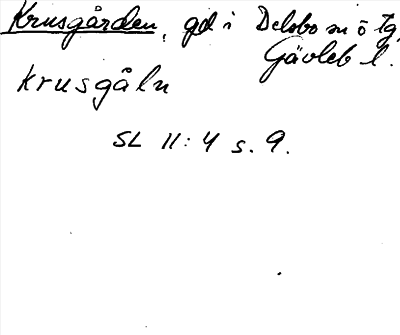 Krusgården, gd i Delsbo sn ö tg,
Gävleb l.
Krusgåln
SL 11:4 s. 9.